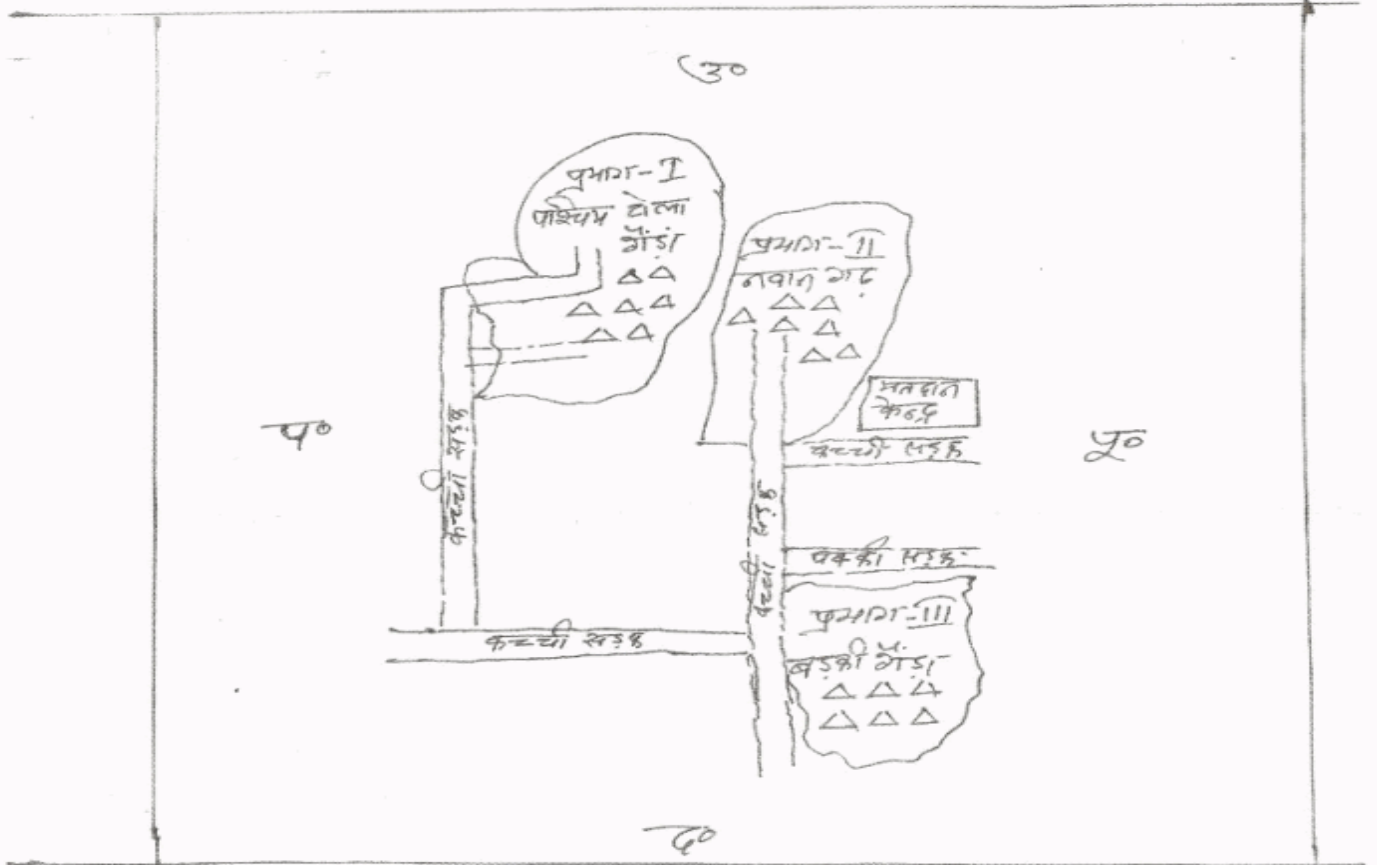 उ०
प्रभाग-I
पश्चिम टोला
गेंड़ा
प्रभाग-II
नवान गढ़
मतदान
केन्द्र
कच्ची सड़क
प०
पू०
कच्ची सड़क
कच्ची सड़क
पक्की सड़क
प्रभाग-III
बड़की गेंड़ा
कच्ची सड़क
द०